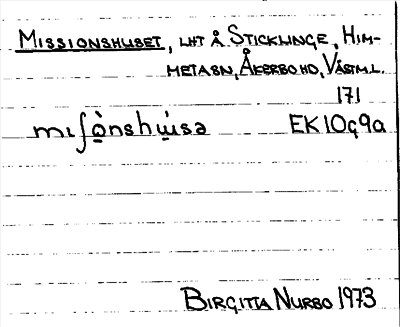 MISSIONSHUSET, LHT Å STICKLINGE, HIM-
METASN, ÅKERBO HD, VÄSTML.
171
mıʃò̤nshṳ̀sə EK10g9a
BIRGITTA NURBO 1973